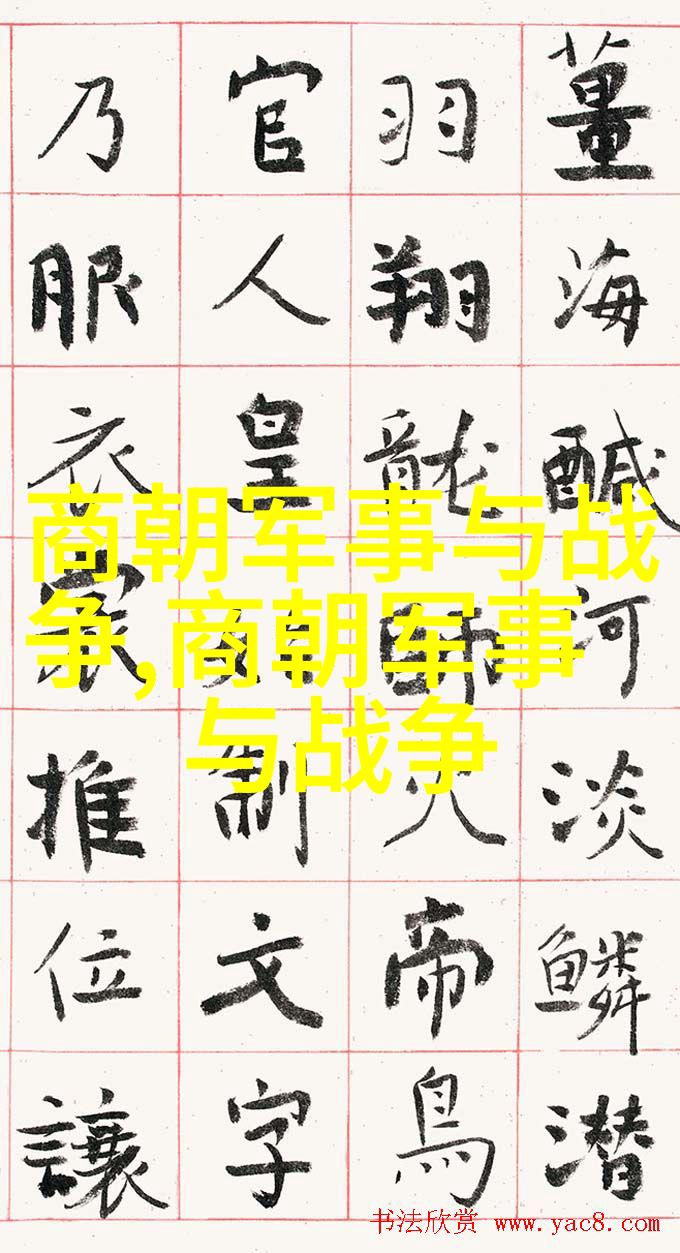 薑海醎河淡鱗潜
羽翔龍師火帝鳥
官人皇始制文字
乃服衣裳推位讓
商朝军事与战
争,商朝军事
与战争
书法欣赏 www.yac8.com